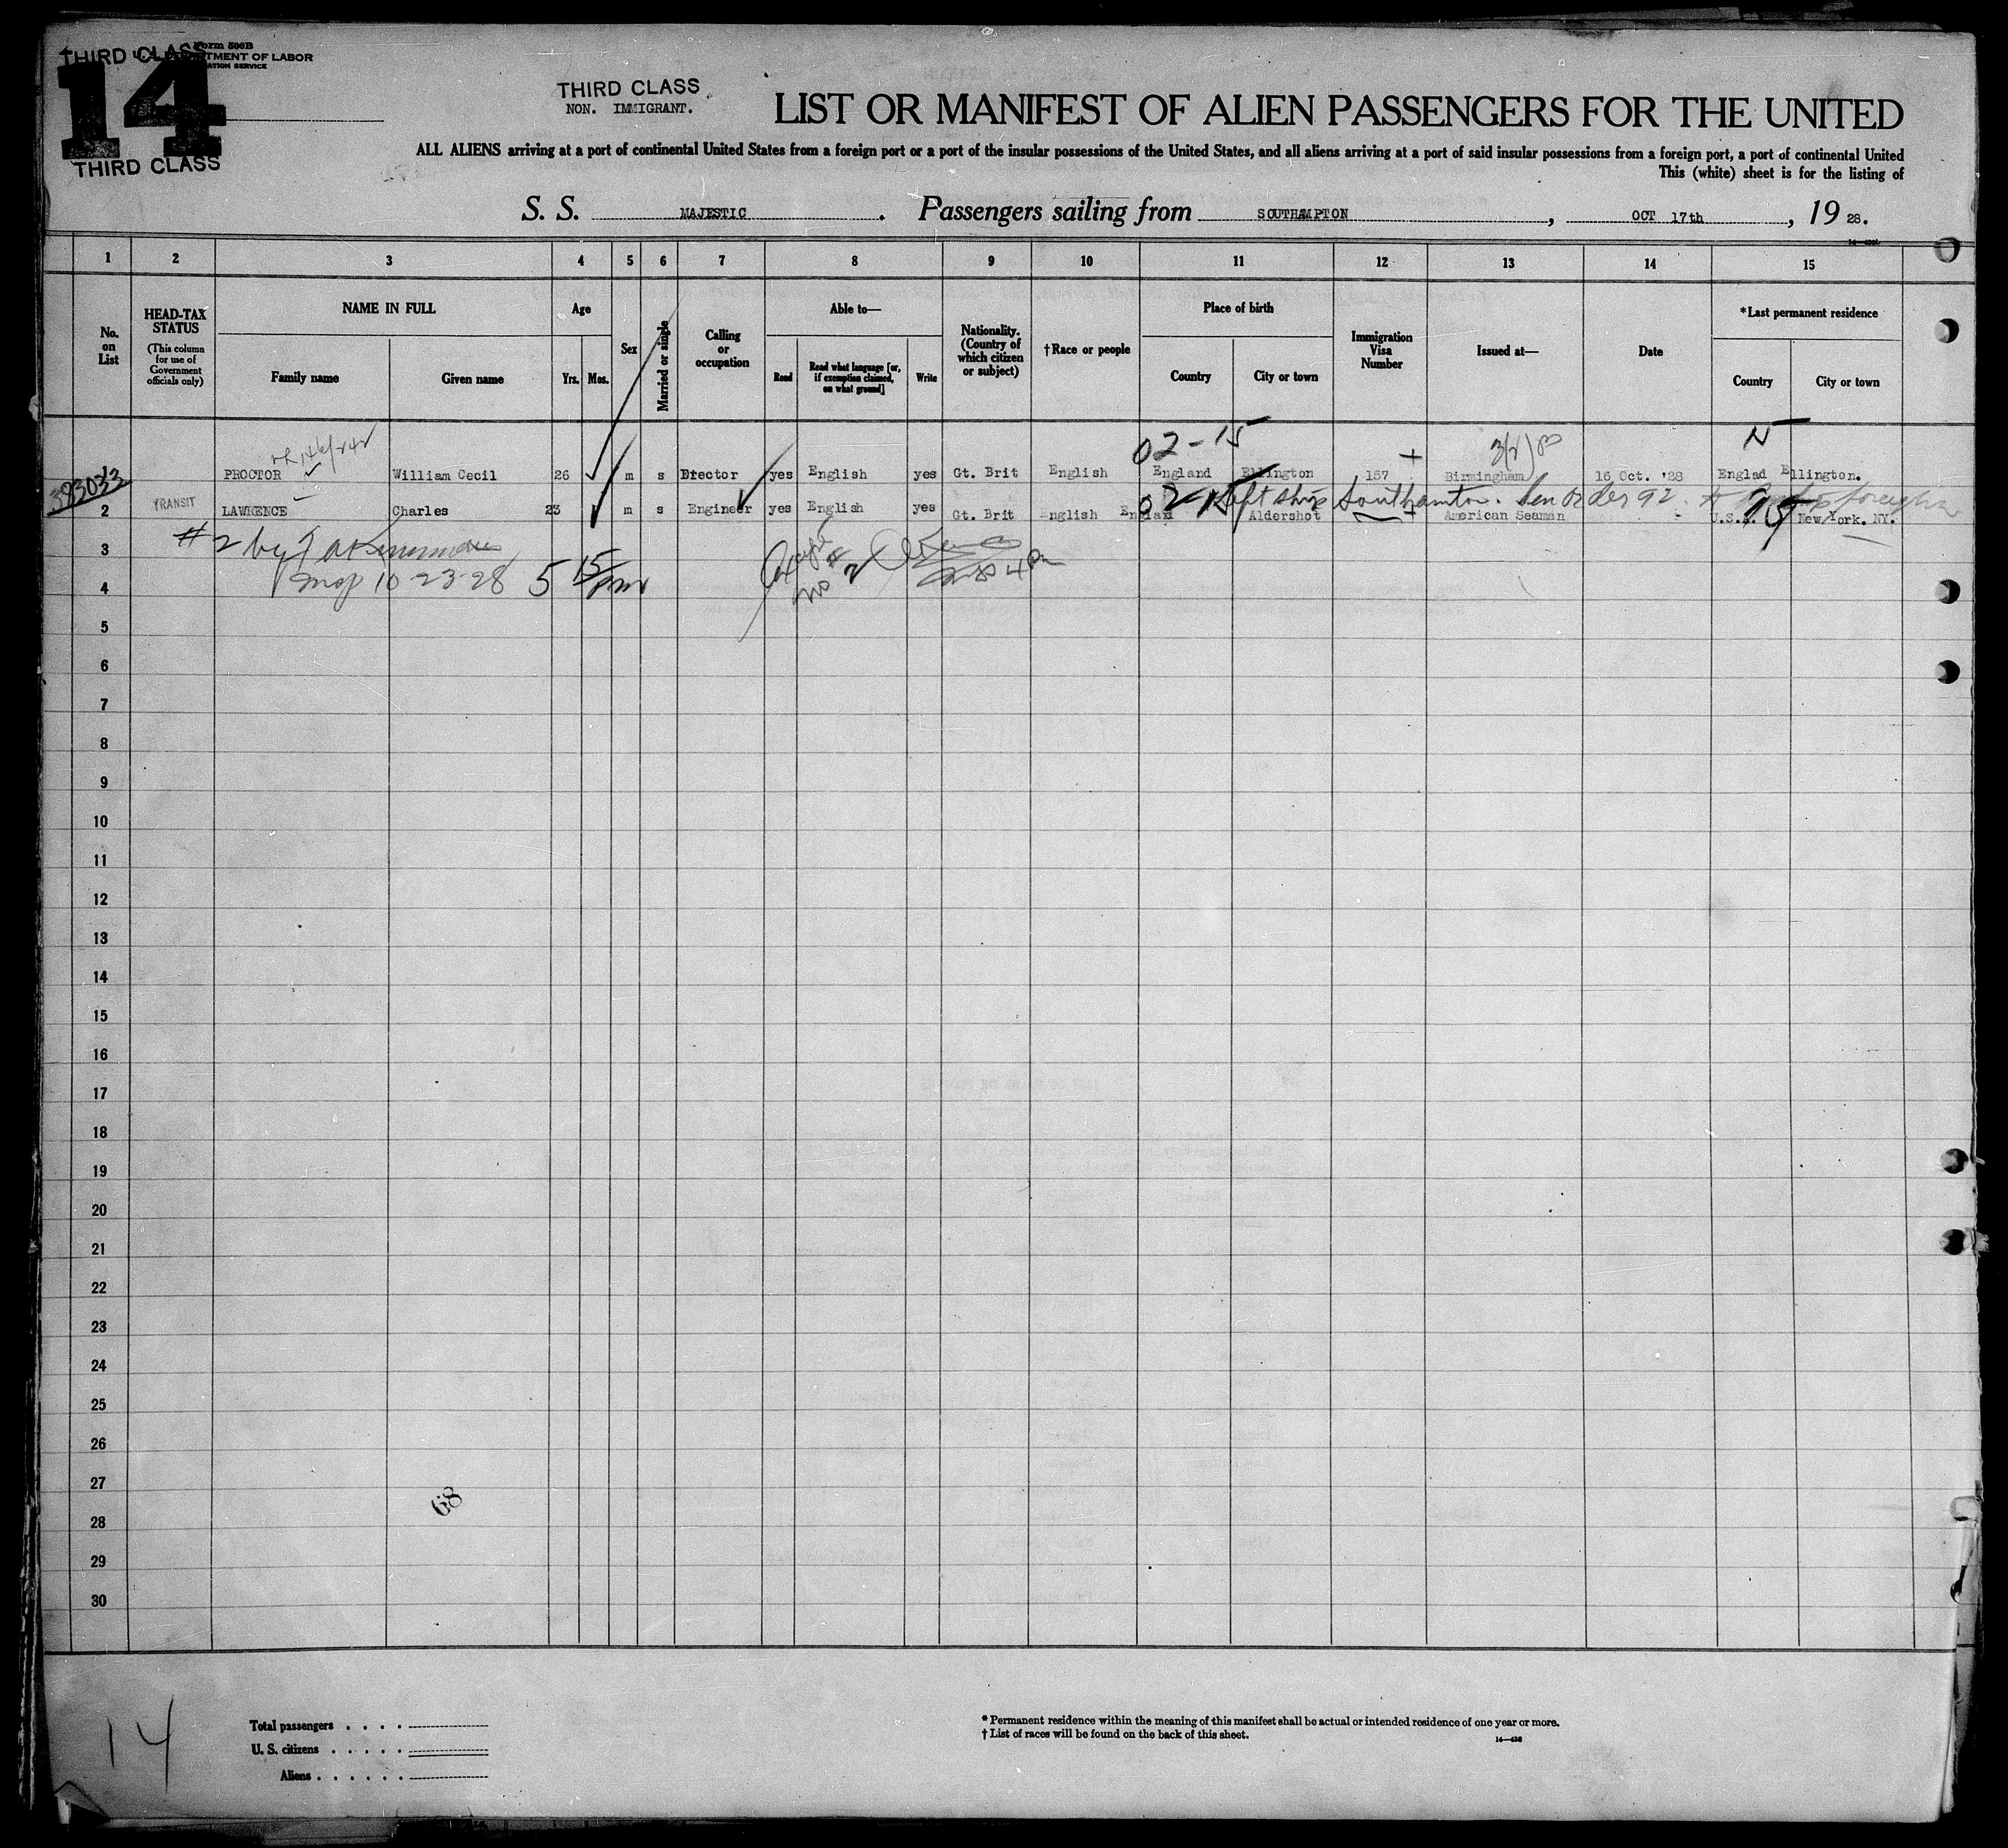 THIRD CLASS
Form 500B
TMENT OF LABOR
ATION SERVICE
14
THIRD CLASS
THIRD CLASS
NON. IMMIGRANT.
LIST OR MANIFEST OF ALIEN PASSENGERS FOR THE UNITED
ALL ALIENS arriving at a port of continental United States from a foreign port or a port of the insular possessions of the United States, and all aliens arriving at a port of said insular possessions from a foreign port, a port of continental United
This (white) sheet is for the listing of
S. S. MAJESTIC. Passengers sailing from SOUTHAMPTON, OCT 17th, 19 28.
1 2 3 4 5 6 7 8 9 10 11 12 13 14 15
No. on List
HEAD-TAX STATUS
(This column for use of Government officials only)
NAME IN FULL
Family name Given name
Age
Yrs. Mos.
Sex
Married or single
Calling or occupation
Able to—
Read Read what language [or, if exemption claimed, on what ground] Write
Nationality. (Country of which citizen or subject)
†Race or people
Place of birth
Country City or town
Immigration Visa Number
Issued at—
Date
*Last permanent residence
Country City or town
02-15 3(2) N
PROCTOR William Cecil 26 m s Drector yes English yes Gt. Brit English England Ellington 157 Birmingham 16 Oct. '28 Englad Ellington.
02-15 left ship Southampton. Gen Order 92
2 TRANSIT LAWRENCE Charles 23 m s Engineer yes English yes Gt. Brit English England Aldershot American Seaman - U.S.A. New York. NY.
3 #2 by
4 Insp 10-23-28 5 15 pm
5
6
7
8
9
10
11
12
13
14
15
16
17
18
19
20
21
22
23
24
25
26
27
68
28
29
30
14
Total passengers . . . .
U. S. citizens . . . . .
Aliens . . . . . .
* Permanent residence within the meaning of this manifest shall be actual or intended residence of one year or more.
† List of races will be found on the back of this sheet.
14—430